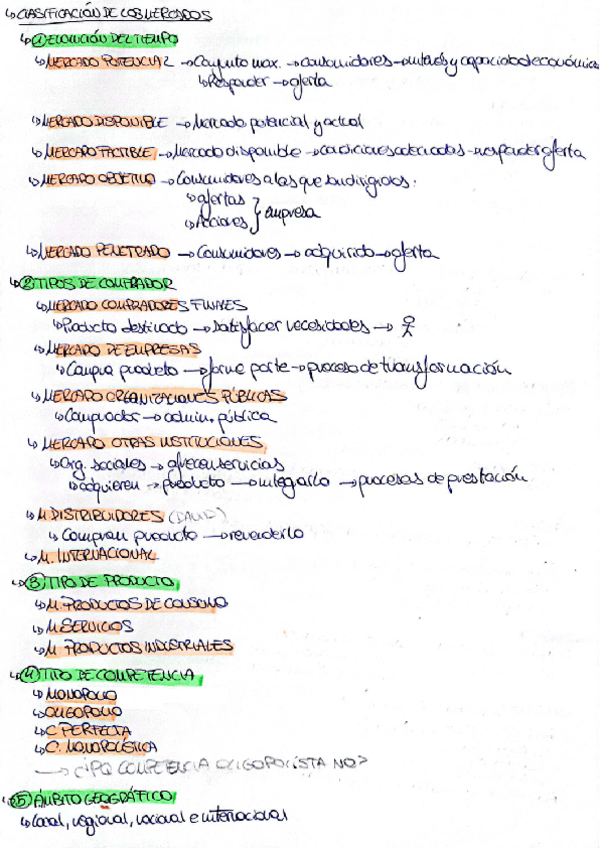 ↳ CLASIFICACIÓN DE LOS MERCADOS
↳ ① EVOLUCIÓN DEL TIEMPO
↳ MERCADO POTENCIAL → Conjunto max. → consumidores → interés y capacidad económica
↳ Responder → oferta
↳ MERCADO DISPONIBLE → Mercado potencial y actual
↳ MERCADO FACTIBLE → Mercado disponible → condiciones adecuadas → responder oferta
↳ MERCADO OBJETIVO → Consumidores a los que van dirigidos:
↳ ofertas
↳ Acciones } empresa
↳ MERCADO PENETRADO → Consumidores → adquirido → oferta
↳ ② TIPOS DE COMPRADOR
↳ MERCADO COMPRADORES FINALES
↳ Producto destinado → satisfacer necesidades →
↳ MERCADO DE EMPRESAS
↳ Compra producto → forme parte → proceso de transformación
↳ MERCADO ORGANIZACIONES PÚBLICAS
↳ Comprador → admin. pública
↳ MERCADO OTRAS INSTITUCIONES
↳ Org. sociales → ofrecen servicios
↳ adquieren → producto → integrarlo → procesos de prestación
↳ M. DISTRIBUIDORES
↳ Compran producto → revenderlo
↳ M. INTERNACIONAL
↳ ③ TIPO DE PRODUCTO
↳ M. PRODUCTOS DE CONSUMO
↳ M. SERVICIOS
↳ M. PRODUCTOS INDUSTRIALES
↳ ④ TIPO DE COMPETENCIA
↳ MONOPOLIO
↳ OLIGOPOLIO
↳ C. PERFECTA
↳ C. MONOPOLÍSTICA
→ ¿PQ COMPETENCIA OLIGOPOLISTA NO?
↳ ⑤ ÁMBITO GEOGRÁFICO
↳ Local, regional, nacional e internacional